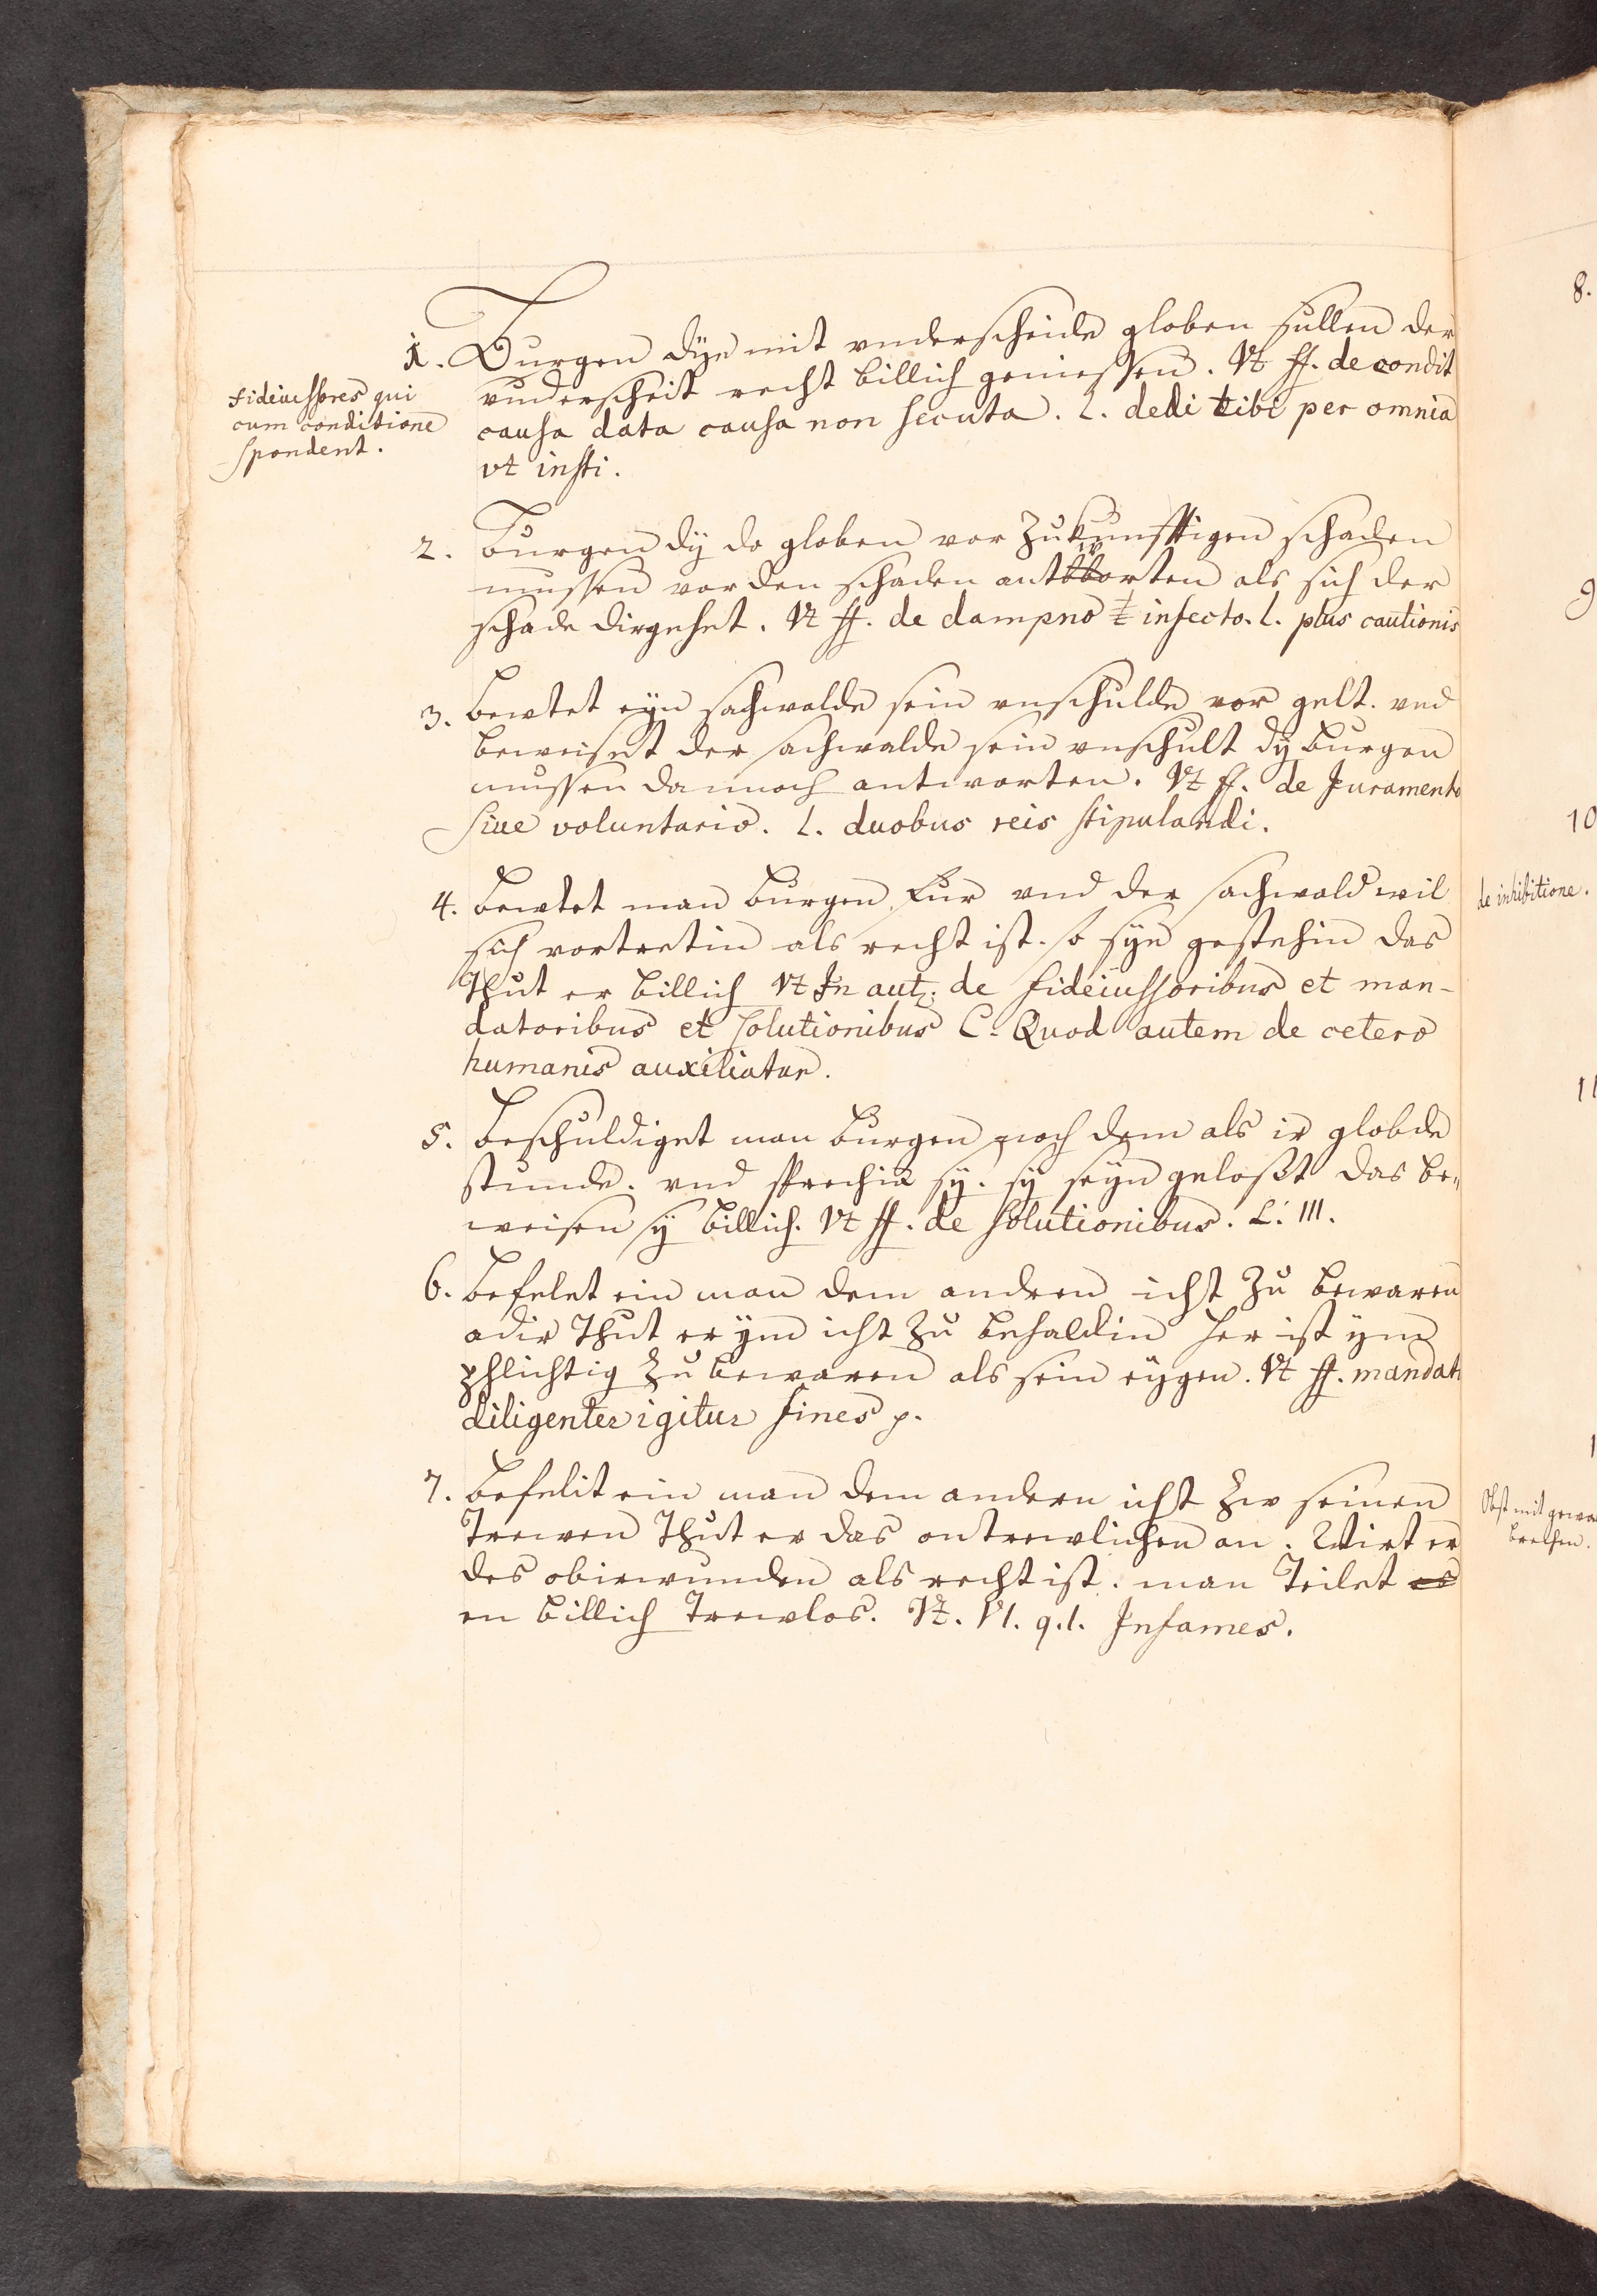 fideiussores qui
cum conditione
spondent.
1. Burgen dye mit vnderscheide globen sullen der
vnderscheit recht billich geniessen. Vt ff. de condit
causa data causa non secuta. l. dedi tibi per omnia
vt insti.
2. Burgen dÿ do globen vor zukunfftigen schaden
mussen vor den schaden antworten als sich der
schade dirgehet. Vt ff. de dampno infecto. l. plus cautionis
3. Bewtet eyn sachwalde sein vnschulde vor gelt. vnd
beweiset der sachwalde sein vnschult dÿ burgen
mussen dannoch antworten. Vt ff. de Juramento
siue voluntario. l. duobus reis stipulandi.
4. Bewtet man burgen fur vnd der sachwald wil
sich vortretin als recht ist. so sÿn gestehin das
Thut er billich Vt In aut. de fideiussoribus et man-
datoribus et solutionibus C. Quod autem de cetero
humanis auxiliatur.
5. Beschuldiget man burgen noch dem als ir globde
stunde. vnd sprechin sÿ. sÿ seyn geloßt das be-
weisen sÿ billich. Vt ff. de solutionibus. L. III.
6. Befelet ein man dem andren icht zu bewaren
adir Thut er ÿm icht zu behaldin her ist ÿm
phlichtig zu bewaren als sein eÿgen. Vt ff. mandati
diligenter igitur fines p.
7. Befelit ein man dem andern icht zw seinen
Trewen Thut er das ontrewlichen an. Wirt er
des obirwunden als recht ist. man Teilet es
en billich Trewlos. Vt. VI. q. 1. Infames.
8.
9
10
de inhibitione.
11
1
mit gewa